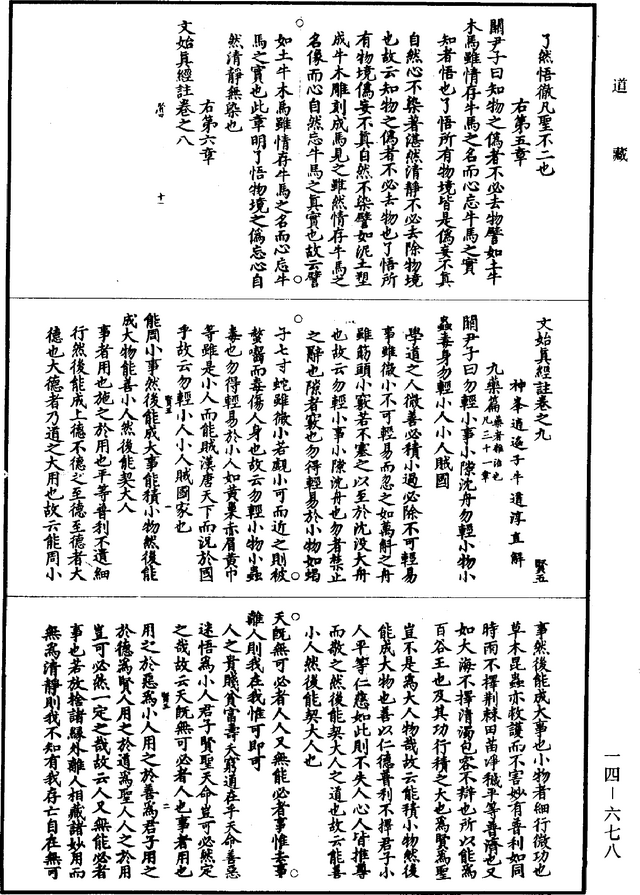 道藏
了然悟徹凡聖不二也
右第五章
關尹子曰知物之僞者不必去物譬如土牛
木馬雖情存牛馬之名而心忘牛馬之實
知者悟也了悟所有物境皆是僞妄不真
自然心不染著湛然清靜不必去除物境
也故云知物之僞者不必去物也了悟所
有物境僞妄不真自然不染譬如泥土塑
成牛木雕刻成馬見之雖然情存牛馬之
名像而心自然忘牛馬之真實也故云譬
如土牛木馬雖情存牛馬之名而心忘牛
馬之實也此章明了悟物境之僞忘心自
然清靜無染也
右第六章
文始真經註卷之八
十一
文始真經註卷之九
賢五
神峯逍遙子牛道淳直解
九藥篇藥者雜治也
凡三十一章
關尹子曰勿輕小事小隙沈舟勿輕小物小
蟲毒身勿輕小人小人賊國
學道之人微善必積小過必除不可輕易
事雖微小不可輕易而忽之如萬斛之舟
雖筋頭小竅若不塞之以至於沈没大舟
也故云勿輕小事小隙沈舟也勿者禁止
之辭也隙者竅也勿得輕易於小物如蝎
子七寸蛇雖微小若覷小可而近之則被
螫嚙而毒傷人身也故云勿輕小物小蟲
毒也勿得輕易於小人如黄巢赤眉黄巾
等雖是小人而能賊漢唐天下而況於國
乎故云勿輕小人小人賊國家也
賢五
能周小事然後能成大事能積小物然後能
成大物能善小人然後能契大人
事者用也施之於用也平等普利不遺細
行然後能成上德不德之至德至德者大
德也大德者乃道之大用也故云能周小
事然後能成大事也小物者細行微功也
草木昆蟲亦救護而不害妙有普利如同
時雨不擇荆棘田苗淨穢平等普濟也又
如大海不擇清濁包容不辯也所以能爲
百谷王也及其功行積之大也爲賢爲聖
豈不是爲大人物哉故云能積小物然後
能成大物也善以仁德普利不擇君子小
人平等仁慈如此則不失人心人皆推尊
而敬之然後能契大人之道也故云能善
小人然後能契大人也
天既無可必者人人又無能必者事惟去事
離人則我在我惟可即可
人之貴賤貧富壽夭窮通在乎天命善惡
迷悟爲小人君子賢聖天命豈可必然定
之哉故云天既無可必者人也事者用也
二
用之於惡爲小人用之於善爲君子用之
於德爲賢人用之於道爲聖人人之於用
豈可必然一定之哉故云人又無能必者
事也若放捨諸緣外離人相藏諸妙用而
無爲清靜則我不知有我存亡自在無可
一四－六七八